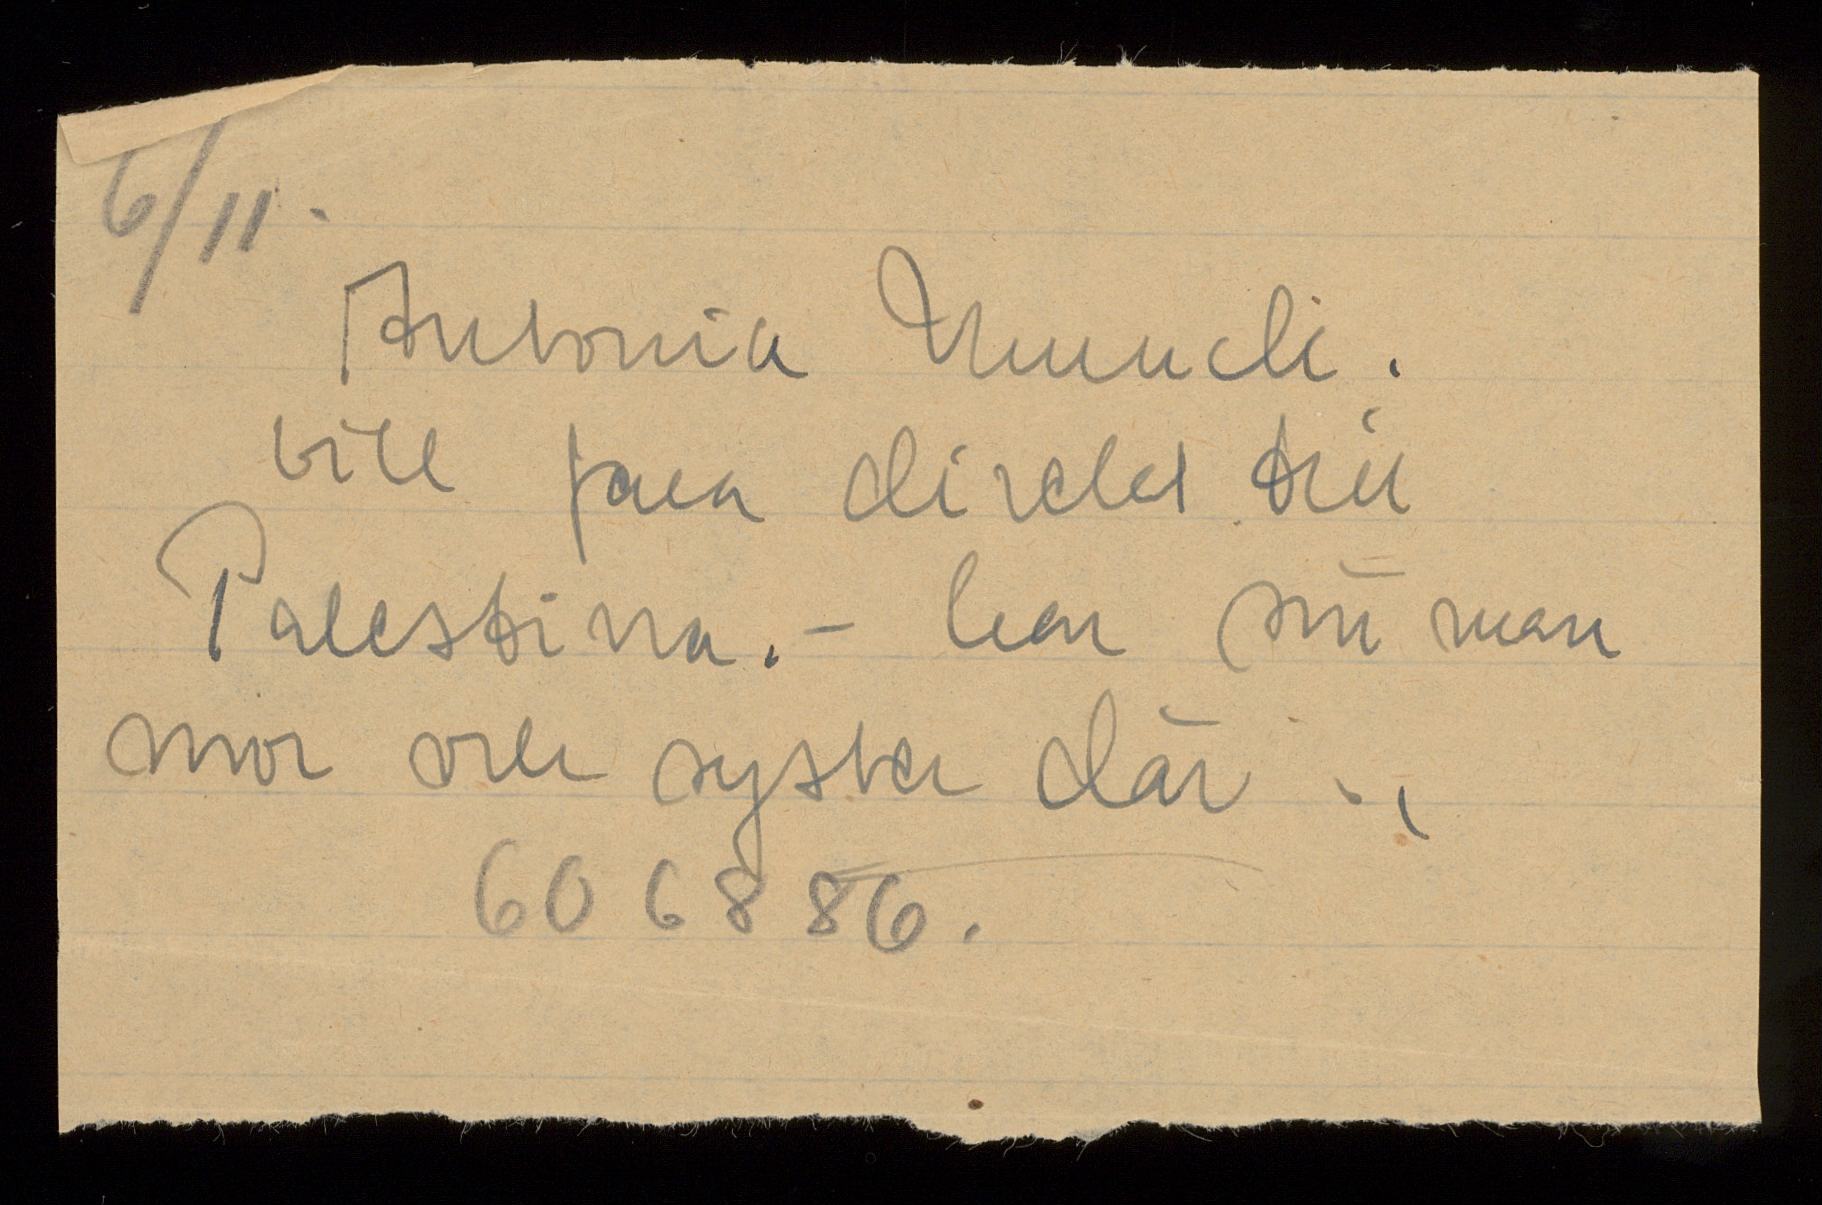 6/11.
Antonia
vill fara direkt till
Palestina. – har sin man
mor och syster där.,
606886.